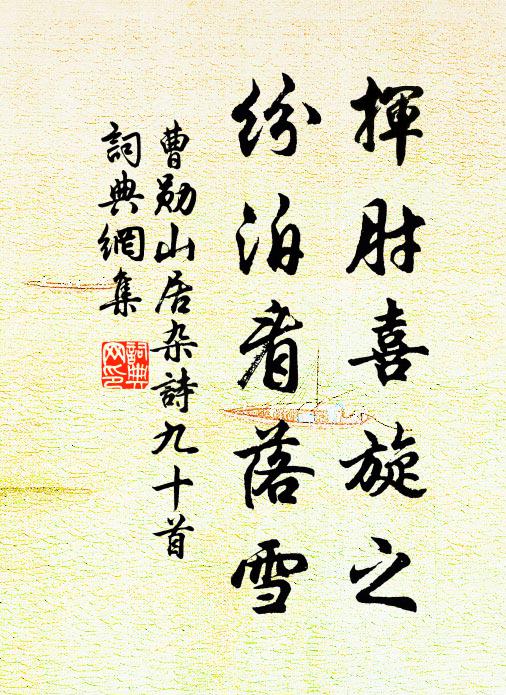 揮肘喜旋之
紛泊看落雪
曹勛山居杂詩九十首
詞典網集
詞典網印